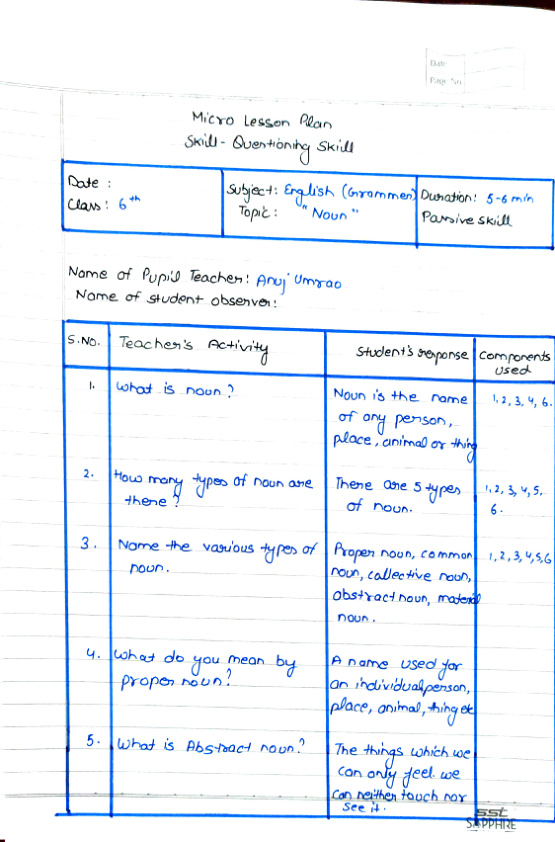 Date
Page No.
Micro Lesson Plan
Skill - Questioning Skill
Date :
Class : 6th
Subject : English (Grammer)
Topic : "Noun"
Duration : 5-6 min
Passive skill
Name of Pupil Teacher : Anuj Umrao
Name of student observer :
S.No. Teacher's Activity Student's response Components
used
1. What is noun? Noun is the name 1, 2, 3, 4, 6.
of any person,
place, animal or thing
2. How many types of noun are There are 5 types 1, 2, 3, 4, 5,
there? of noun. 6.
3. Name the various types of Proper noun, common 1, 2, 3, 4, 5, 6
noun. noun, collective noun,
abstract noun, material
noun.
4. What do you mean by A name used for
proper noun? an individual person,
place, animal, thing etc
5. What is Abstract noun? The things which we
can only feel. we
can neither touch nor
see it.
sst
SAPPHIRE